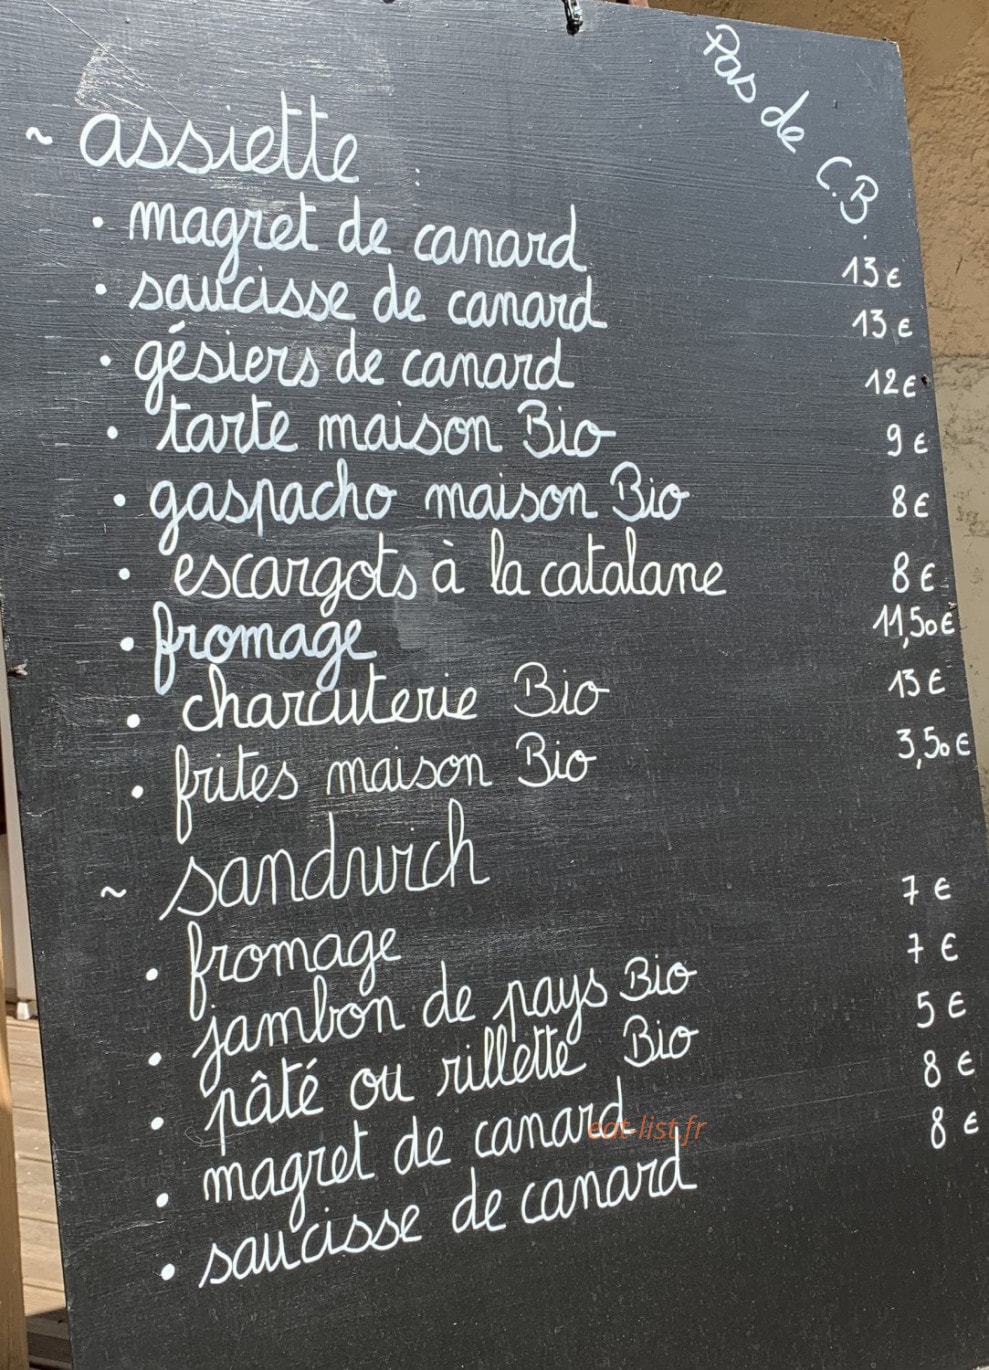 Pas de C.B.
~ assiette :
• magret de canard 13 €
• saucisse de canard 13 €
• gésiers de canard 12 €
• tarte maison Bio 9 €
• gaspacho maison Bio 8 €
• escargots à la catalane 8 €
• fromage 11,50 €
• charcuterie Bio 13 €
• frites maison Bio 3,50 €
~ sandwich
• fromage 7 €
• jambon de pays Bio 7 €
• pâté ou rillette Bio 5 €
• magret de canard 8 €
• saucisse de canard 8 €
eat-list.fr